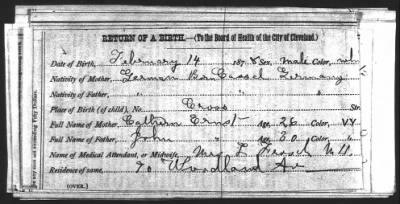 RETURN OF A BIRTH.—(To the Board of Health of the City of Cleveland.)
Date of Birth, February 14 1878 Sex, Male Color, wh
Nativity of Mother, German Cassel Germany
Nativity of Father, " " "
Place of Birth (of child), No. Cross Str.
Full Name of Mother, Ernst Age, 26 Color,
Full Name of Father, John " Age, 30 Color,
Name of Medical Attendant, or Midwife, Mrs
Residence of same, 90 Woodland Av
(OVER.)
not exceeding Fifty Dollars.